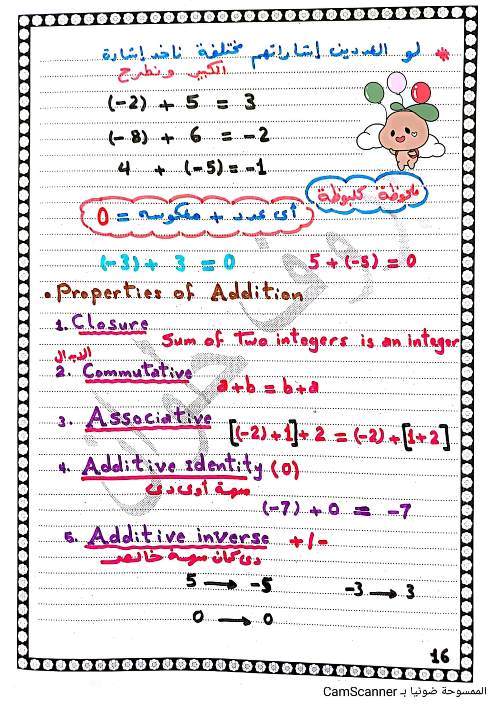 * لو العددين إشاراتهم مختلفة ناخد إشارة
الكبير ونطرح
(-2) + 5 = 3
(-8) + 6 = -2
4 + (-5) = -1
ملحوظة كلبوظة
أى عدد + معكوسه = 0
(-3) + 3 = 0 5 + (-5) = 0
• Properties of Addition
1. Closure
Sum of Two integers is an integer
الابدال
2. Commutative
a+b = b+a
3. Associative
[(-2)+1]+2 = (-2)+[1+2]
4. Additive identity (0)
سهلة أوى دى
(-7) + 0 = -7
5. Additive inverse +/-
دى كمان سهلة خالص
5 → -5 -3 → 3
0 → 0
16
الممسوحة ضوئيا بـ CamScanner